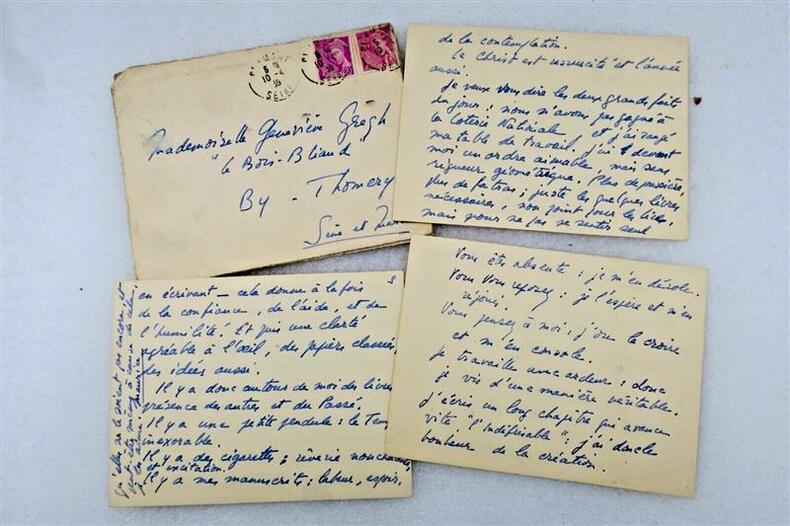 Mademoiselle Geneviève Gregh
"Le Bois-Bliaud"
By - Thomery
Seine et
Vous êtes absente : je m'en désole.
Vous vous reposez : je l'espère et m'en
réjouis.
Vous pensez à moi : j'ose le croire
et m'en console.
Je travaille avec ardeur : donc
je vis d'une manière véritable.
J'écris un long chapitre qui avance
vite "l'Indéfrisable" : j'ai donc le
bonheur de la création.
de la contemplation.
Le Christ est ressuscité et l'année
aussi.
Je veux vous dire les deux grands fait
du jour : nous n'avons pas gagné à
la Loterie Nationale et j'ai rangé
ma table de travail. J'ai devant
moi un ordre aimable mais sans
rigueur géométrique. Plus de poussière,
plus de fatras ; juste les quelques livres
nécessaires, non point pour les lire,
mais pour ne pas se sentir seul
3
en écrivant — cela donne à la fois
de la confiance, de l'aide, et de
l'humilité ! Et puis une clarté
agréable à l'œil, des papiers classés,
des idées aussi.
Il y a donc autour de moi des livres
présence des autres et du Passé.
Il y a une petite pendule : le Tem
inexorable.
Il y a des cigarettes ; rêverie nonchalante
et incitation.
Il y a mes manuscrits : labeur, espoir,
qu'elles ne le soient pas encore, et
peut-être même à cause de cela
je les aime. Maurice